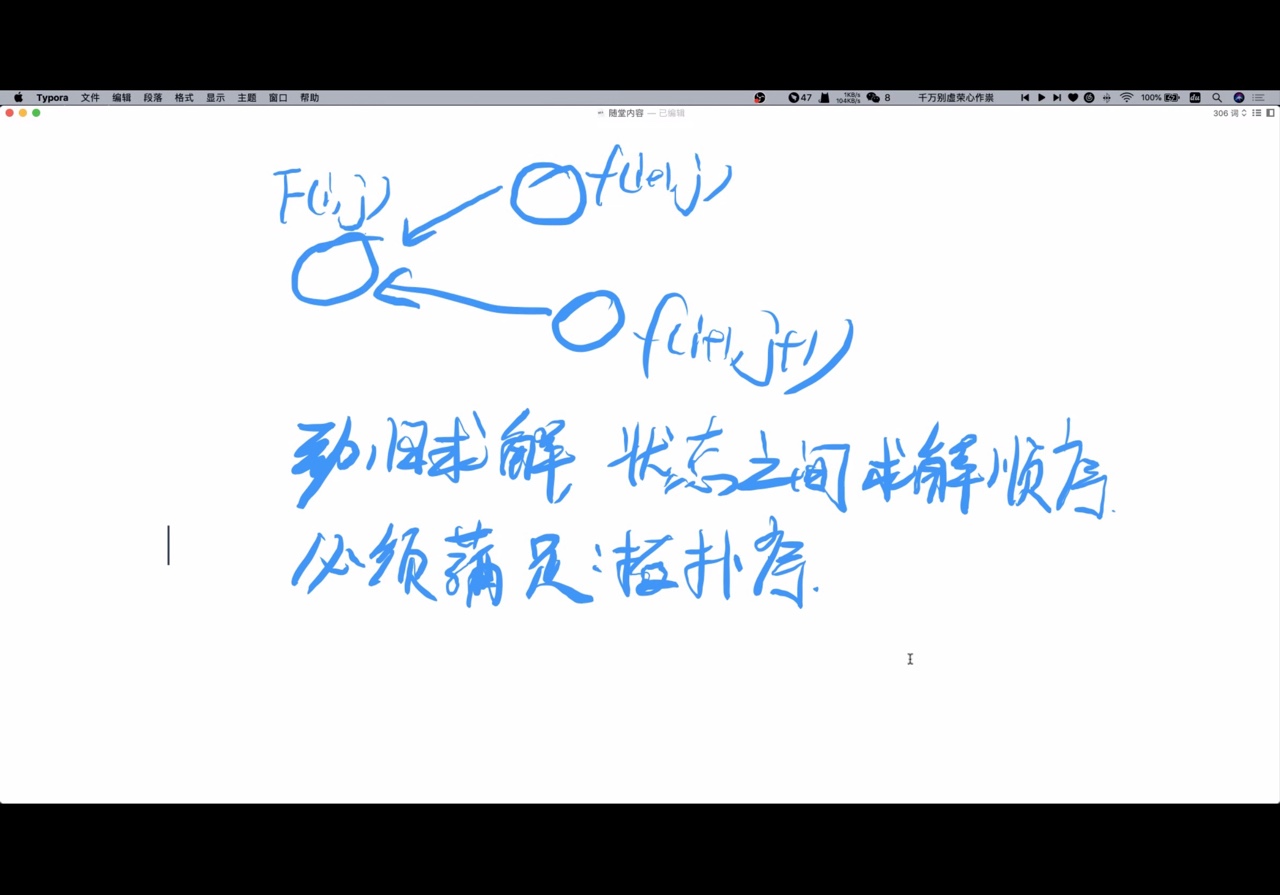 Typora 文件 编辑 段落 格式 显示 主题 窗口 帮助 47 1KB/s 104KB/s 8 千万别虚荣心作祟 100%
随堂内容 — 已编辑 306 词
F(i,j) f(i+1,j)
f(i+1,j+1)
动归求解,状态之间求解顺序
必须满足:拓扑序.